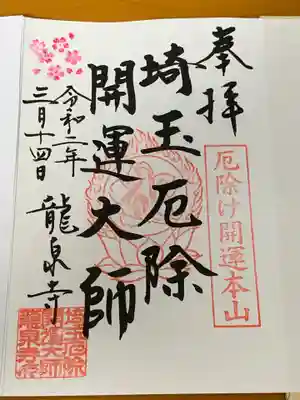 奉拝
厄除け開運本山
埼玉厄除
開運大師
令和二年
三月十四日
龍泉寺
埼玉厄除
開運大師
龍泉寺印